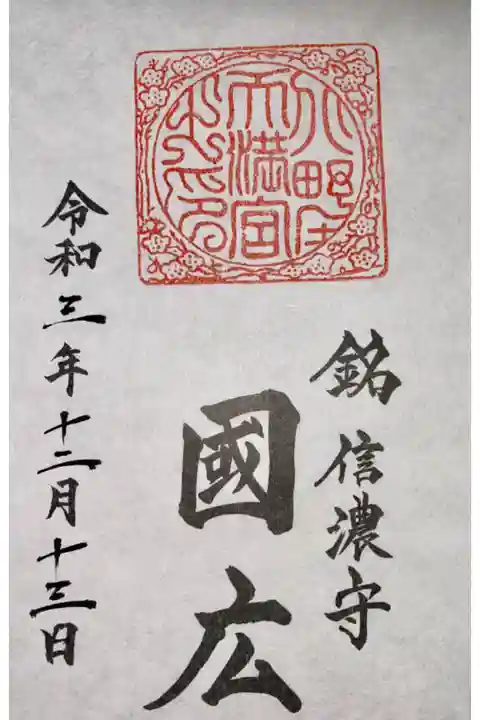 天満宮
銘 信濃守
國広
令和三年十二月十三日